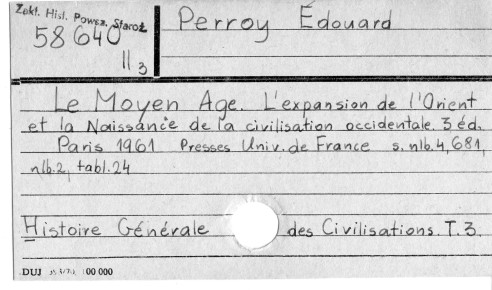 Zakł. Hist. Powsz. Staroż
58640
II 3
Perroy Édouard
Le Moyen Age. L'expansion de l'Orient
et la Naissance de la civilisation occidentale. 3 éd.
Paris 1961 Presses Univ. de France s. nlb. 4, 681,
nlb. 2, tabl. 24
Histoire Générale des Civilisations. T. 3.
DUJ 100 000